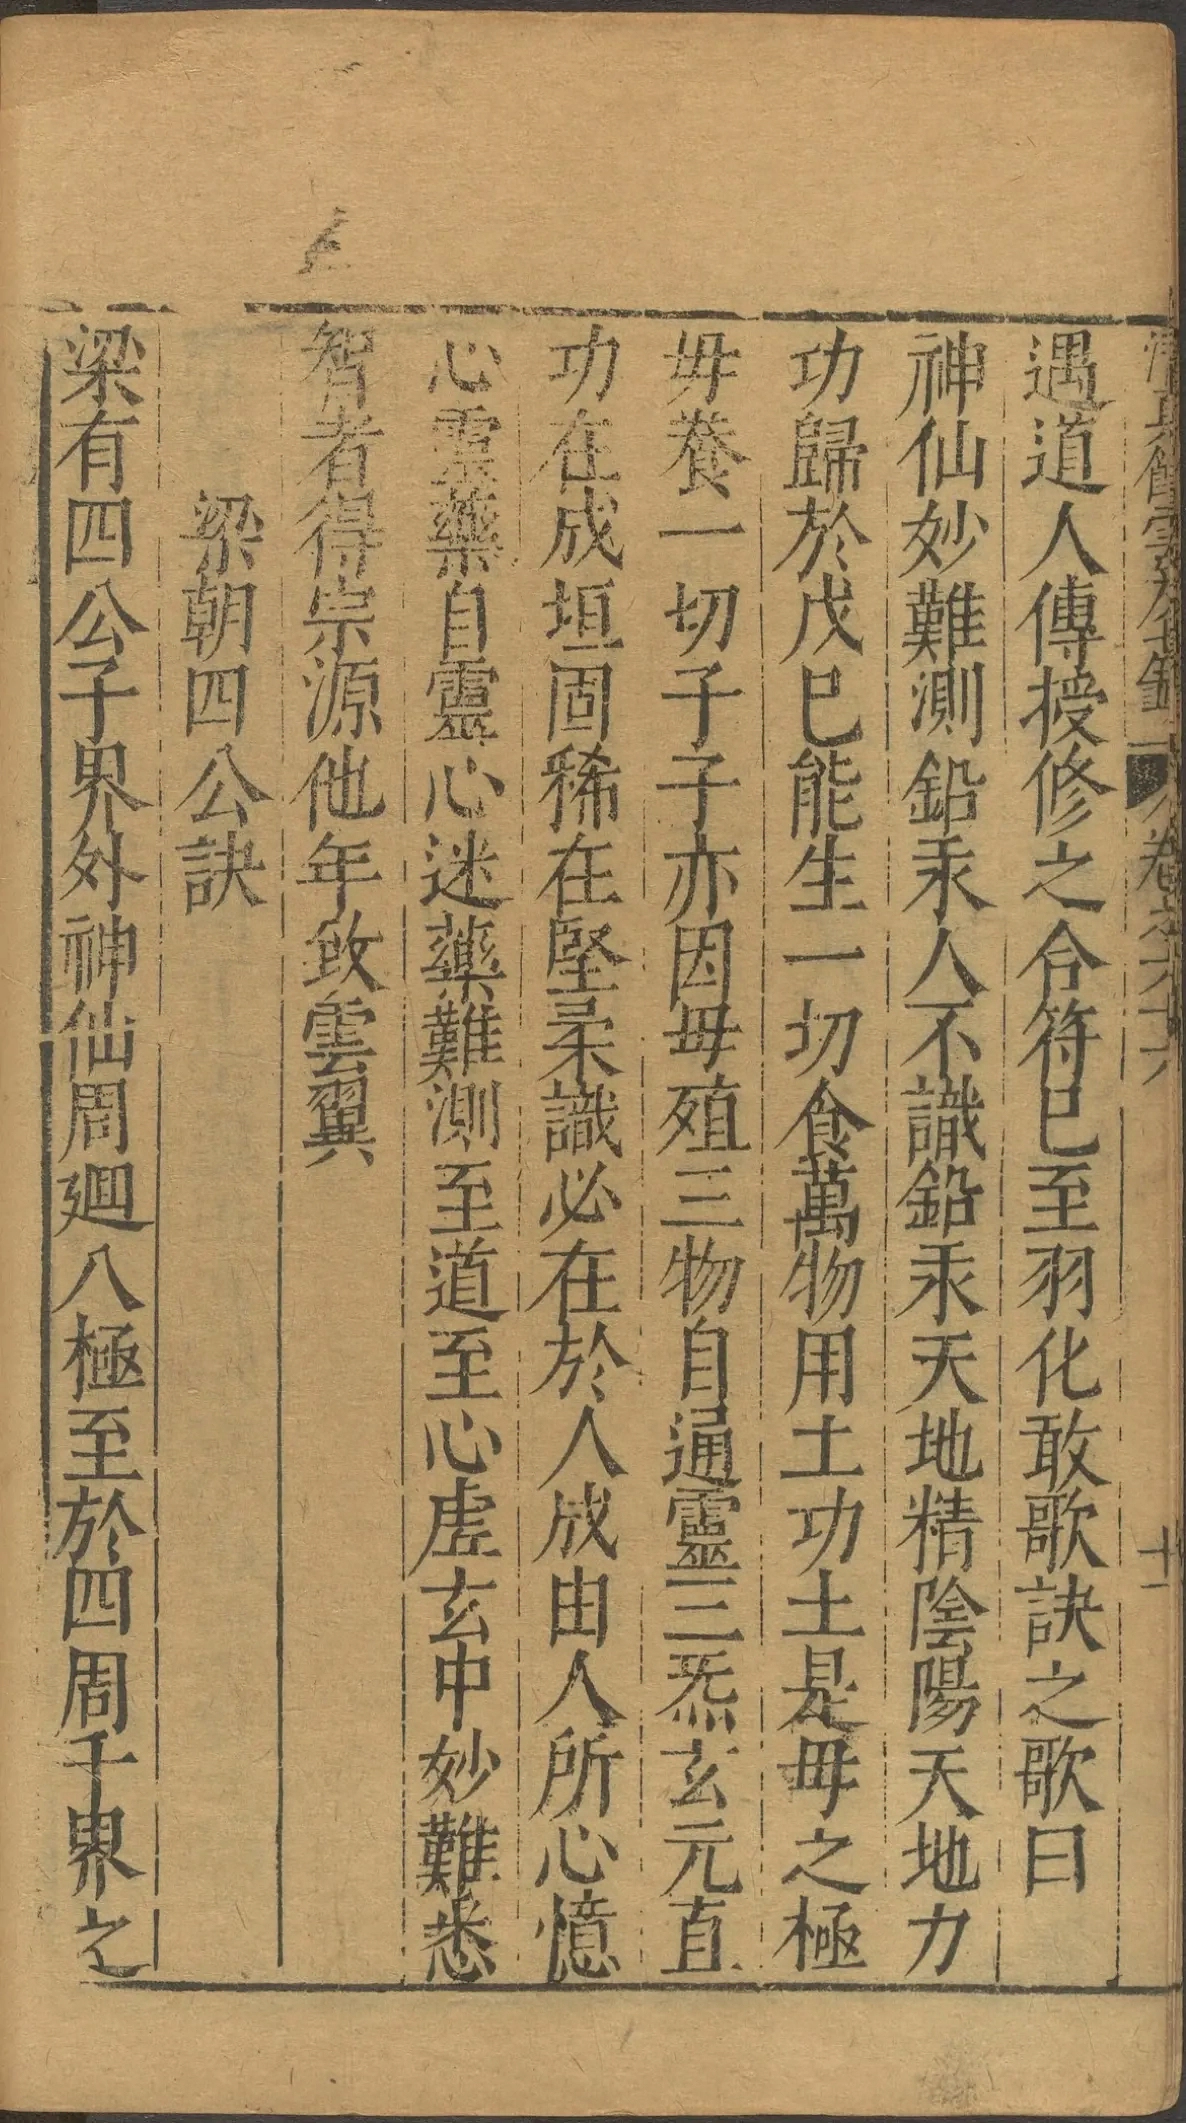 清真館雲笈七籤 卷之六十六 十一
遇道人傳授修之合符已至羽化敢歌訣之歌曰
神仙妙難測鉛汞人不識鉛汞天地精陰陽天地力
功歸於戊巳能生一切食萬物用土功土是毋之極
毋養一切子子亦因毋殖三物自通靈三炁玄元直
功在成垣固稀在堅柔識必在於人成由人所心憶
心靈藥自靈心迷藥難測至道至心虗玄中妙難悉
智者得宗源他年致雲翼
梁朝四公訣
梁有四公子界外神仙周廻八極至於四周千界之